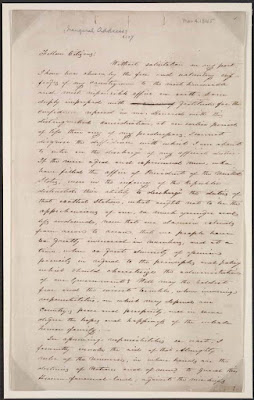 Mar 4 1845
(Inaugural Address)
Fellow Citizens:
Without solicitation on my part,
I have been chosen by the free and voluntary suf-
frages of my countrymen to the most honorable
and most responsible office on earth. I am
deeply impressed with gratitude for the
confidence reposed in me. Honored with this
distinguished consideration at an earlier period
of life than any of my predecessors, I cannot
disguise the diffidence with which I am about
to enter on the discharge of my official duties.
If the more aged and experienced men, who
have filled the office of President of the United
States, even in the infancy of the Republic
distrusted their ability to discharge the duties of
that exalted station, what ought not to be the
apprehensions of one so much younger and
less endowed, now that our domain extends
from ocean to ocean, that our people have
so greatly increased in numbers, and at a
time when so great diversity of opinion
prevails in regard to the principles and policy
which should characterize the administration
of our Government? Well may the boldest
fear and the wisest tremble, when incurring
responsibilities, on which may depend our
Country's peace and prosperity, and in some
degree the hopes and happiness of the whole
human family.
In assuming responsibilities so vast, I
fervently invoke the aid of that Almighty
ruler of the Universe, in whose hands are the
destinies of Nations and of men, to guard this
Heaven favored land, against the mischiefs